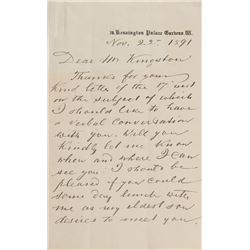 18, Kensington Palace Gardens, W.
Nov. 23rd 1891
Dear Mr Kingston
Thanks for your
kind letter of the 17th inst
on the subject of which
I should like to have
a verbal conversation
with you. Will you
kindly let me know
when and where I can
see you I should be
pleased if you could
some day lunch with
me as my eldest son
desires to meet you